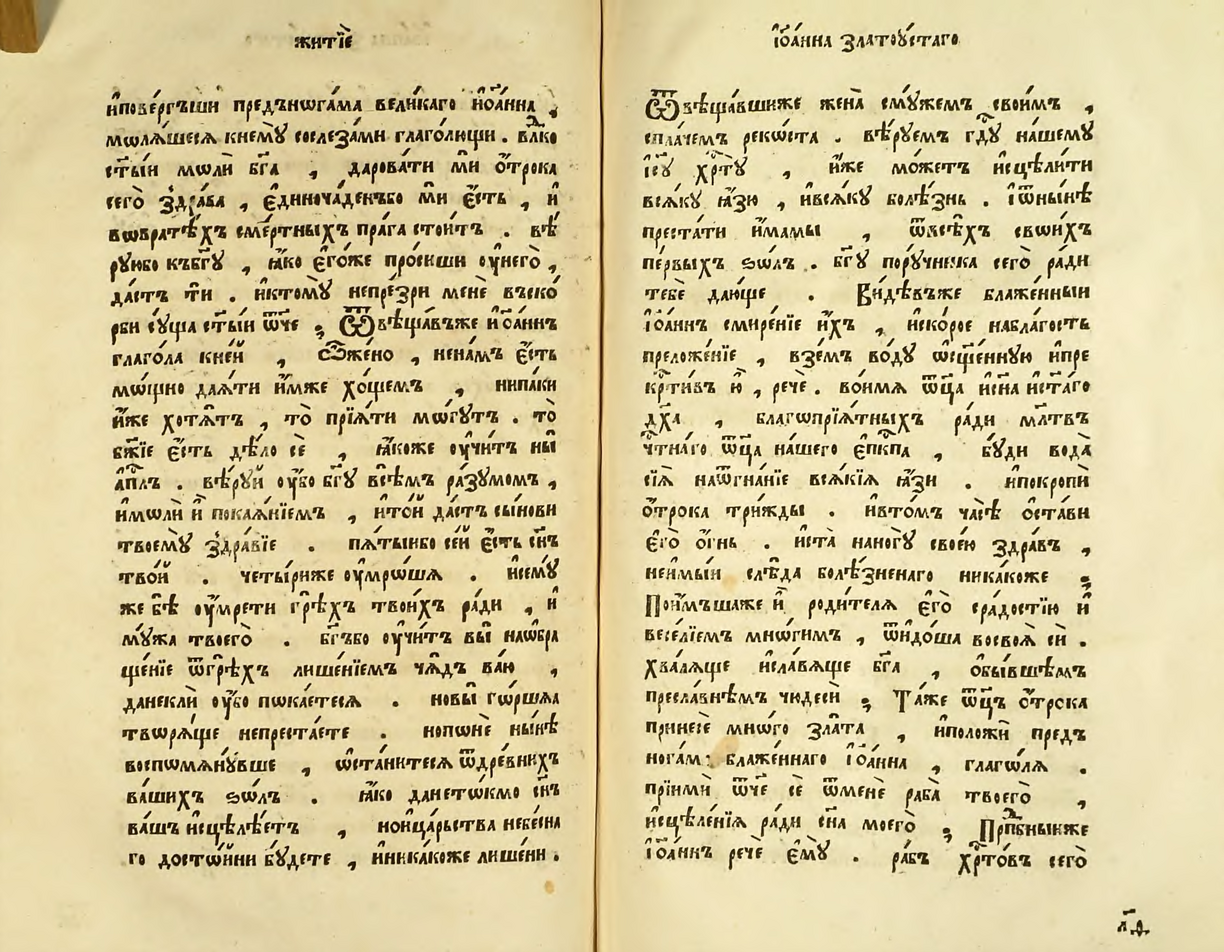 житїѐ
и҆пове́ргъши предънѡга́ма вели́каго і҆ѡа́нна ,
мѡлѧ́шесѧ кнемꙋ̀ сослеза́ми глаго́лющи . влⷣко
ст҃ы́и мѡлѝ бг҃а , дарова́ти мѝ о҆́трока
сего̀ здра́ва , є҆диноча́денъбо мѝ є҆́сть , и҆
вовратѣ́хъ сме́ртныхъ пра́га стои́тъ . вѣ́
рꙋибо къбг҃ꙋ , ꙗ҆́ко є҆го́же про́сиши ᲂу҆него̀ ,
да́стъ тѝ . и҆ктомꙋ̀ непре́зри менѐ въско́
рби сꙋ́ща ст҃ы́и ѿч҃е ; Ѿвѣща́въже и҆ѡа́ннъ
глаго́ла кне́й , ѽже́но , нена́мъ є҆́сть
мѡ́щно даѧ́ти и҆́мже хо́щемъ , нипа́ки
и҆́же хотѧ́тъ , то̀ прїѧ́ти мѡ́гꙋтъ . то̀
бж҃їе є҆́сть дѣ́ло сѐ , ꙗ҆́коже ᲂу҆чи́тъ ны̀
а҆пⷭ҇лъ . вѣ́рꙋй ᲂу҆́бо бг҃ꙋ всѣ́мъ ра́зꙋмомъ ,
и҆молѝ и҆ покаѧ́нїемъ , и҆то́й да́стъ сы́нови
твоемꙋ̀ здра́вїе . пѧ́тыибо се́й є҆́сть сн҃ъ
тво́й . четы́риже ᲂу҆мро́ша . и҆семꙋ́
же бѣ̀ ᲂу҆мре́ти грѣ́хъ твои́хъ ра́ди , и҆
мꙋ́жа твоего̀ . бг҃ъбо ᲂу҆чи́тъ вы̀ наѡбра
ще́нїе ѿгрѣ́хъ лише́нїемъ чѧ́дъ ва́ю ,
данеклѝ ᲂу҆́бо пѡка́етесѧ . но́вы гѡ́ршаѧ
твѡрѧ́ще непреста́ете . нопѡнѐ ны́нѣ
воспѡмѧнꙋ́вше , ѡ҆ста́нитесѧ ѿдре́внихъ
ва́шихъ ѕѡ́лъ . ꙗ҆́ко дане́тѡкмо сн҃ъ
ва́шъ и҆сцѣлѣ́етъ , нои҆ца́рьства небе́сна
го досто́ини бꙋ́дете , и҆ника́коже лише́ни .
і҆ѡа́нна златоꙋ́стаго
Ѿвѣща́вшиже жена̀ смꙋ́жемъ свои́мъ ,
спла́чемъ реко́ста . вѣ́рꙋем гдⷭ҇ꙋ на́шемꙋ
і҆с҃ꙋ хрⷭ҇тꙋ̀ , и҆́же мо́жетъ и҆сцѣли́ти
всѧ́кꙋ ꙗ҆́зю , и҆всѧ́кꙋ болѣ́знь . і҆ѿны́нѣ
преста́ти и҆́мамы , ѿвсѣ́хъ свои́хъ
пе́рвыхъ ѕѡ́лъ . бг҃ꙋ порꙋ́чника сего̀ ра́ди
тебѐ даю́ще . Ви́дѣвъже блаже́нныи
і҆ѡа́ннъ смире́нїе и҆́хъ , и҆ско́рое набла́гость
преложе́нїе , взе́мъ во́дꙋ ѡ҆сщ҃е́ннꙋю и҆пре
крⷭ҇ти́въ ю҆̀ , речѐ . во́имѧ ѿц҃а и҆сн҃а и҆ст҃а́го
дх҃а , благопрїѧ́тныхъ ра́ди мл҃твъ
чⷭ҇тна́го ѿц҃а на́шего є҆пкⷭ҇па , бꙋ́ди вода̀
сїѧ̀ наѿгна́нїе всѧ́кїѧ ꙗ҆́зи . и҆покропѝ
о҆́трока три́жды . и҆вто́мъ ча́сѣ о҆ста́ви
є҆го̀ о҆́гнь . и҆ста̀ нано́гꙋ свое́ю здра́въ ,
неимы́й слѣ́да болѣ́зненаго ника́коже ;
Пои́мъшаже и҆̀ роди́телѧ є҆го̀ сра́достїю и҆
весе́лїемъ мно́гимъ , ѿидо́ша восвоѧ̀ сѝ .
хвалѧ́ще и҆сла́вѧще бг҃а , обы́вшѣмъ
пресла́внѣмъ чю́деси ; Та́же ѿц҃ъ о҆́трока
принесѐ мно́го зла́та , и҆положѝ предъ
нога́ма блаже́ннаго і҆ѡа́нна , глаго́лѧ .
прїимѝ ѿч҃е сѐ ѿменѐ раба̀ твоего̀ ,
и҆сцѣле́нїѧ ра́ди сн҃а моего̀ ; Прпⷣбныиже
і҆ѡа́ннъ речѐ є҆мꙋ̀ . ра́бъ хрⷭ҇то́въ сего̀
л҃д